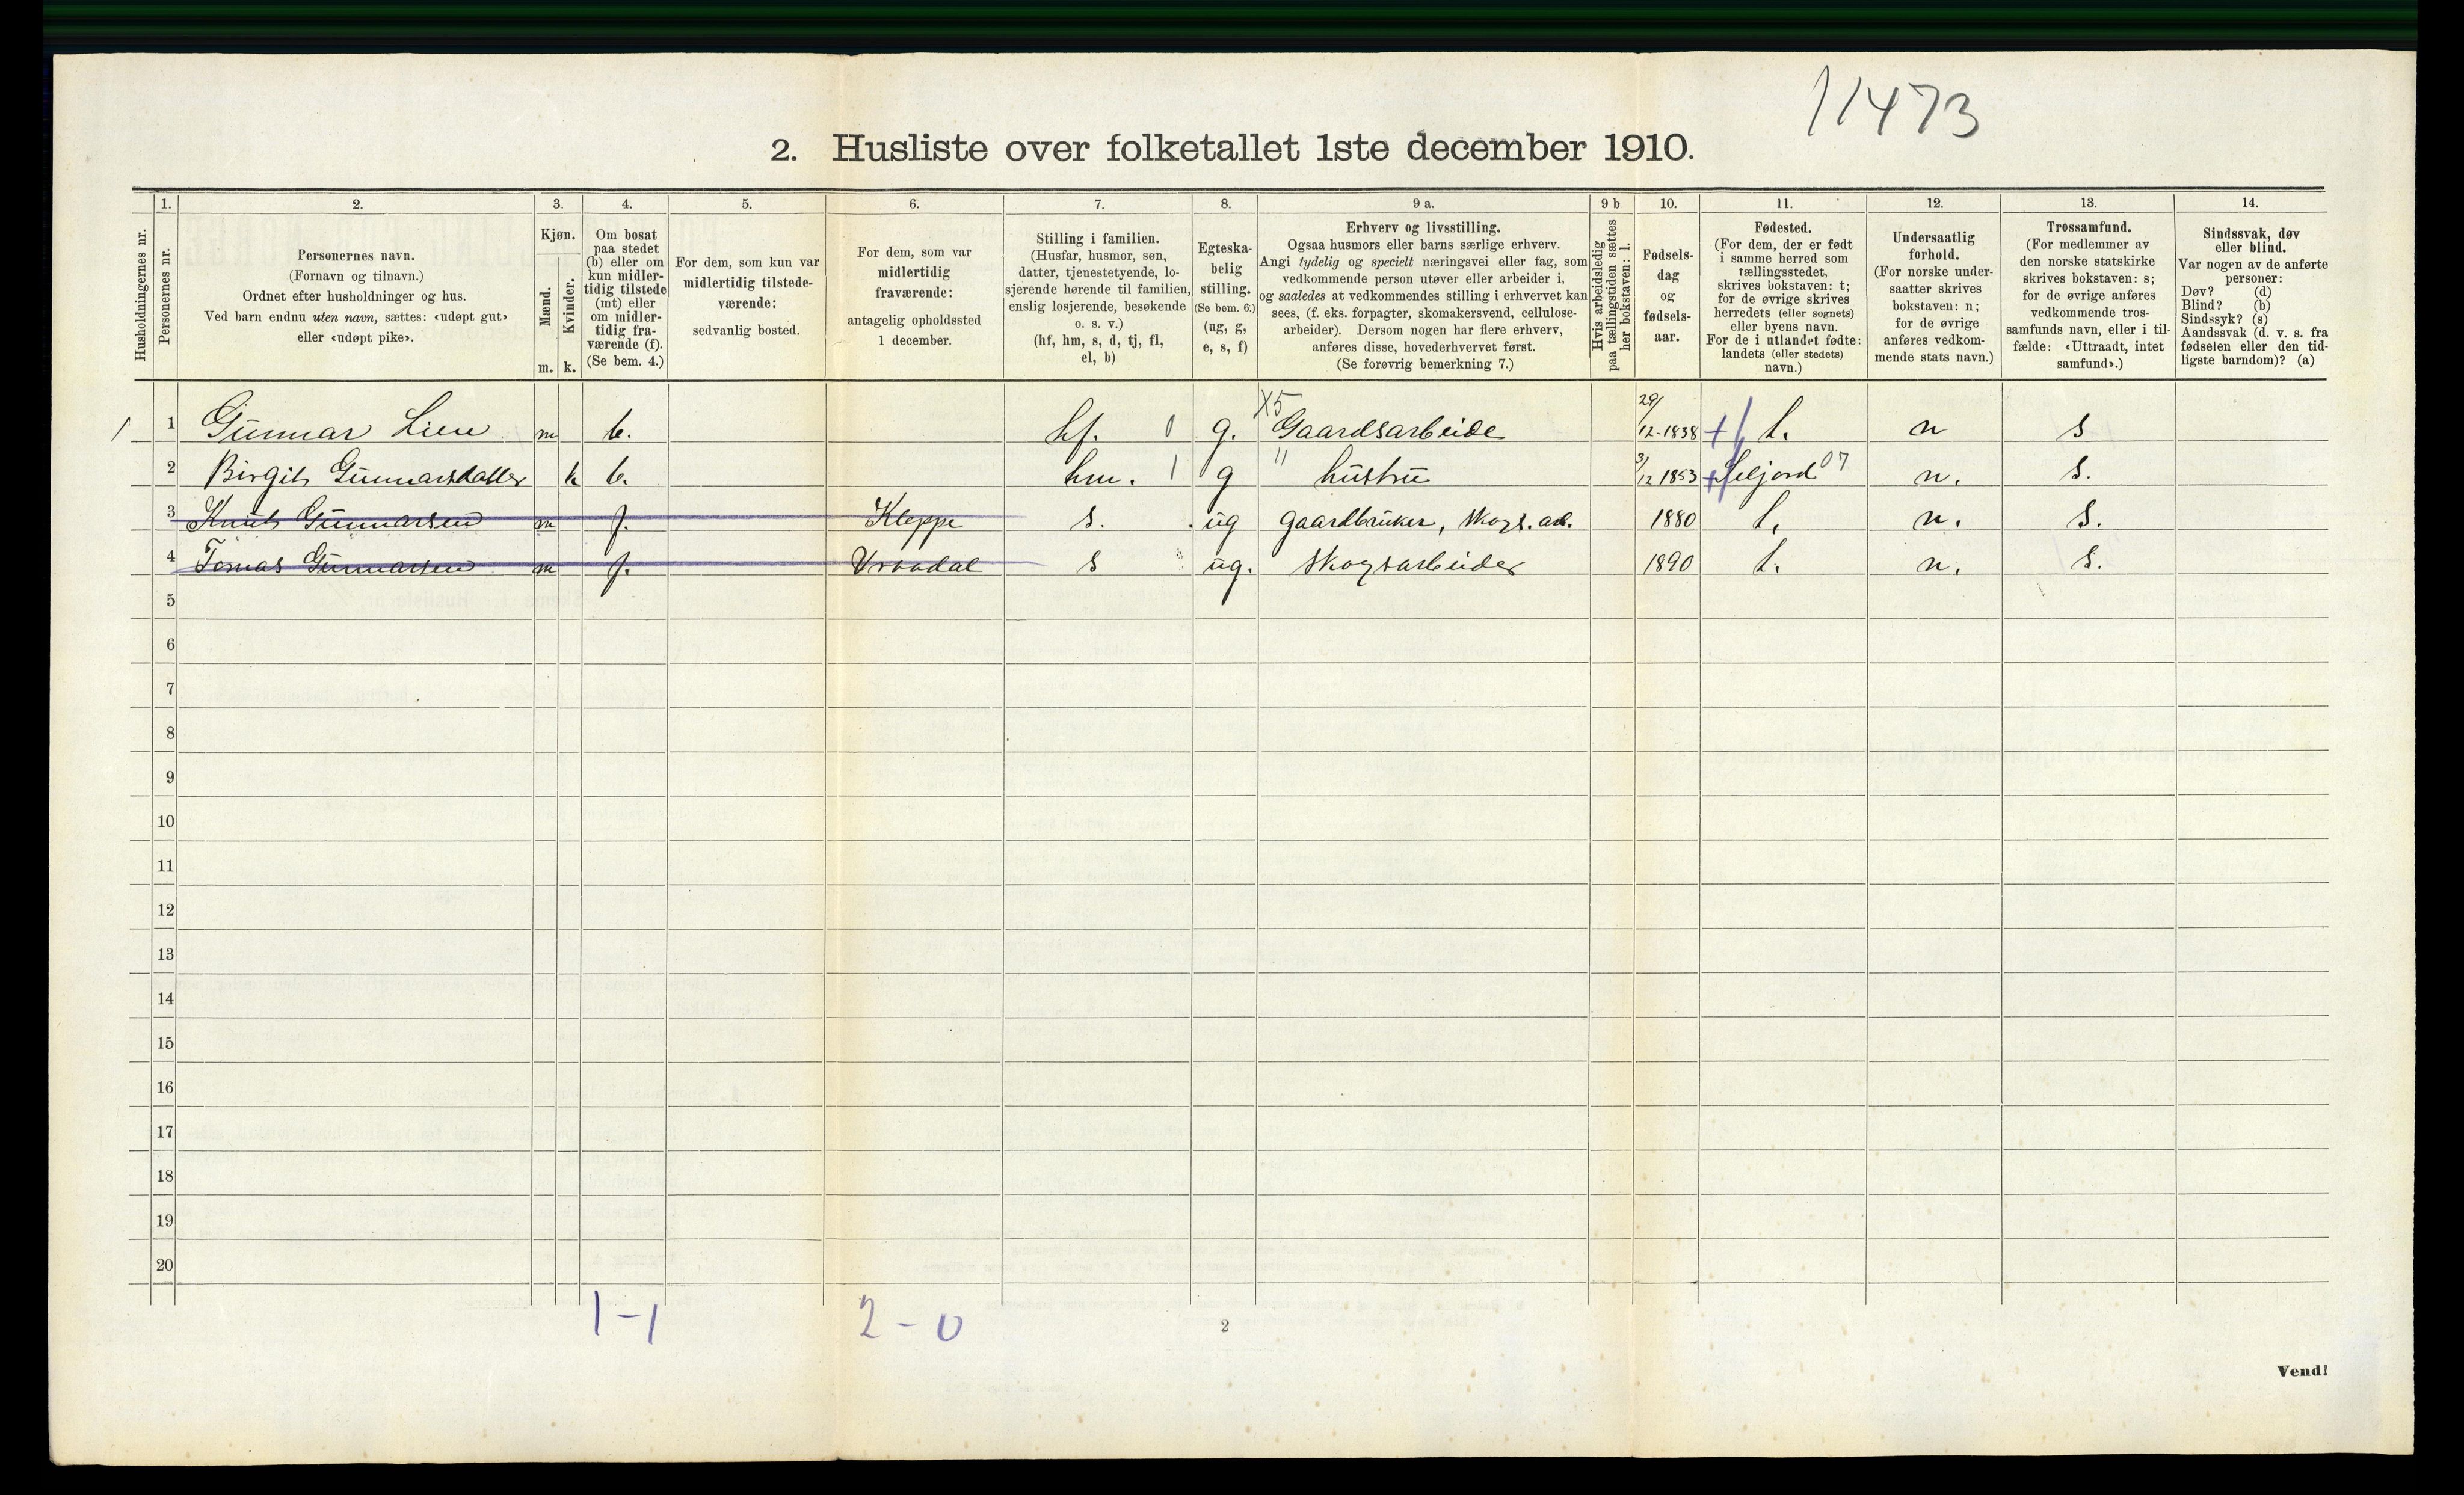 11473
2. Husliste over folketallet 1ste december 1910.
1. 2. 3. 4. 5. 6. 7. 8. 9 a. 9 b 10. 11. 12. 13. 14.
Husholdningernes nr.
Personernes nr.
Personernes navn.
(Fornavn og tilnavn.)
Ordnet efter husholdninger og hus.
Ved barn endnu uten navn, sættes: «udøpt gut»
eller «udøpt pike».
Kjøn.
Mænd.
Kvinder.
m. k.
Om bosat
paa stedet
(b) eller om
kun midler-
tidig tilstede
(mt) eller
om midler-
tidig fra-
værende (f).
(Se bem. 4.)
For dem, som kun var
midlertidig tilstede-
værende:
sedvanlig bosted.
For dem, som var
midlertidig
fraværende:
antagelig opholdssted
1 december.
Stilling i familien.
(Husfar, husmor, søn,
datter, tjenestetyende, lo-
sjerende hørende til familien,
enslig losjerende, besøkende
o. s. v.)
(hf, hm, s, d, tj, fl,
el, b)
Egteska-
belig
stilling.
(Se bem. 6.)
(ug, g,
e, s, f)
Erhverv og livsstilling.
Ogsaa husmors eller barns særlige erhverv.
Angi tydelig og specielt næringsvei eller fag, som
vedkommende person utøver eller arbeider i,
og saaledes at vedkommendes stilling i erhvervet kan
sees, (f. eks. forpagter, skomakersvend, cellulose-
arbeider). Dersom nogen har flere erhverv,
anføres disse, hovederhvervet først.
(Se forøvrig bemerkning 7.)
Hvis arbeidsledig
paa tællingstiden sættes
her bokstaven: l.
Fødsels-
dag
og
fødsels-
aar.
Fødested.
(For dem, der er født
i samme herred som
tællingsstedet,
skrives bokstaven: t;
for de øvrige skrives
herredets (eller sognets)
eller byens navn.
For de i utlandet fødte:
landets (eller stedets)
navn.)
Undersaatlig
forhold.
(For norske under-
saatter skrives
bokstaven: n;
for de øvrige
anføres vedkom-
mende stats navn.)
Trossamfund.
(For medlemmer av
den norske statskirke
skrives bokstaven: s;
for de øvrige anføres
vedkommende tros-
samfunds navn, eller i til-
fælde: «Uttraadt, intet
samfund».)
Sindssvak, døv
eller blind.
Var nogen av de anførte
personer:
Døv? (d)
Blind? (b)
Sindssyk? (s)
Aandssvak (d. v. s. fra
fødselen eller den tid-
ligste barndom)? (a)
1 1 Gunnar Lien m b. hf. 0 g. X5 Gaardsarbeide 29/12-1838 t. n s
2 Birgit Gunnarsdatter k b. hm. 1 g " hustru 3/12 1853 Seljord 07 n. s.
3 Knut Gunnarsen m f. Kleppe s. ug gaardbruker, skogs.arb. 1880 t. n. s.
4 Tomas Gunnarsen m f. Vraadal s ug. skogsarbeider 1890 t. n. s.
5
6
7
8
9
10
11
12
13
14
15
16
17
18
19
20
1-1 2-0
2
Vend!